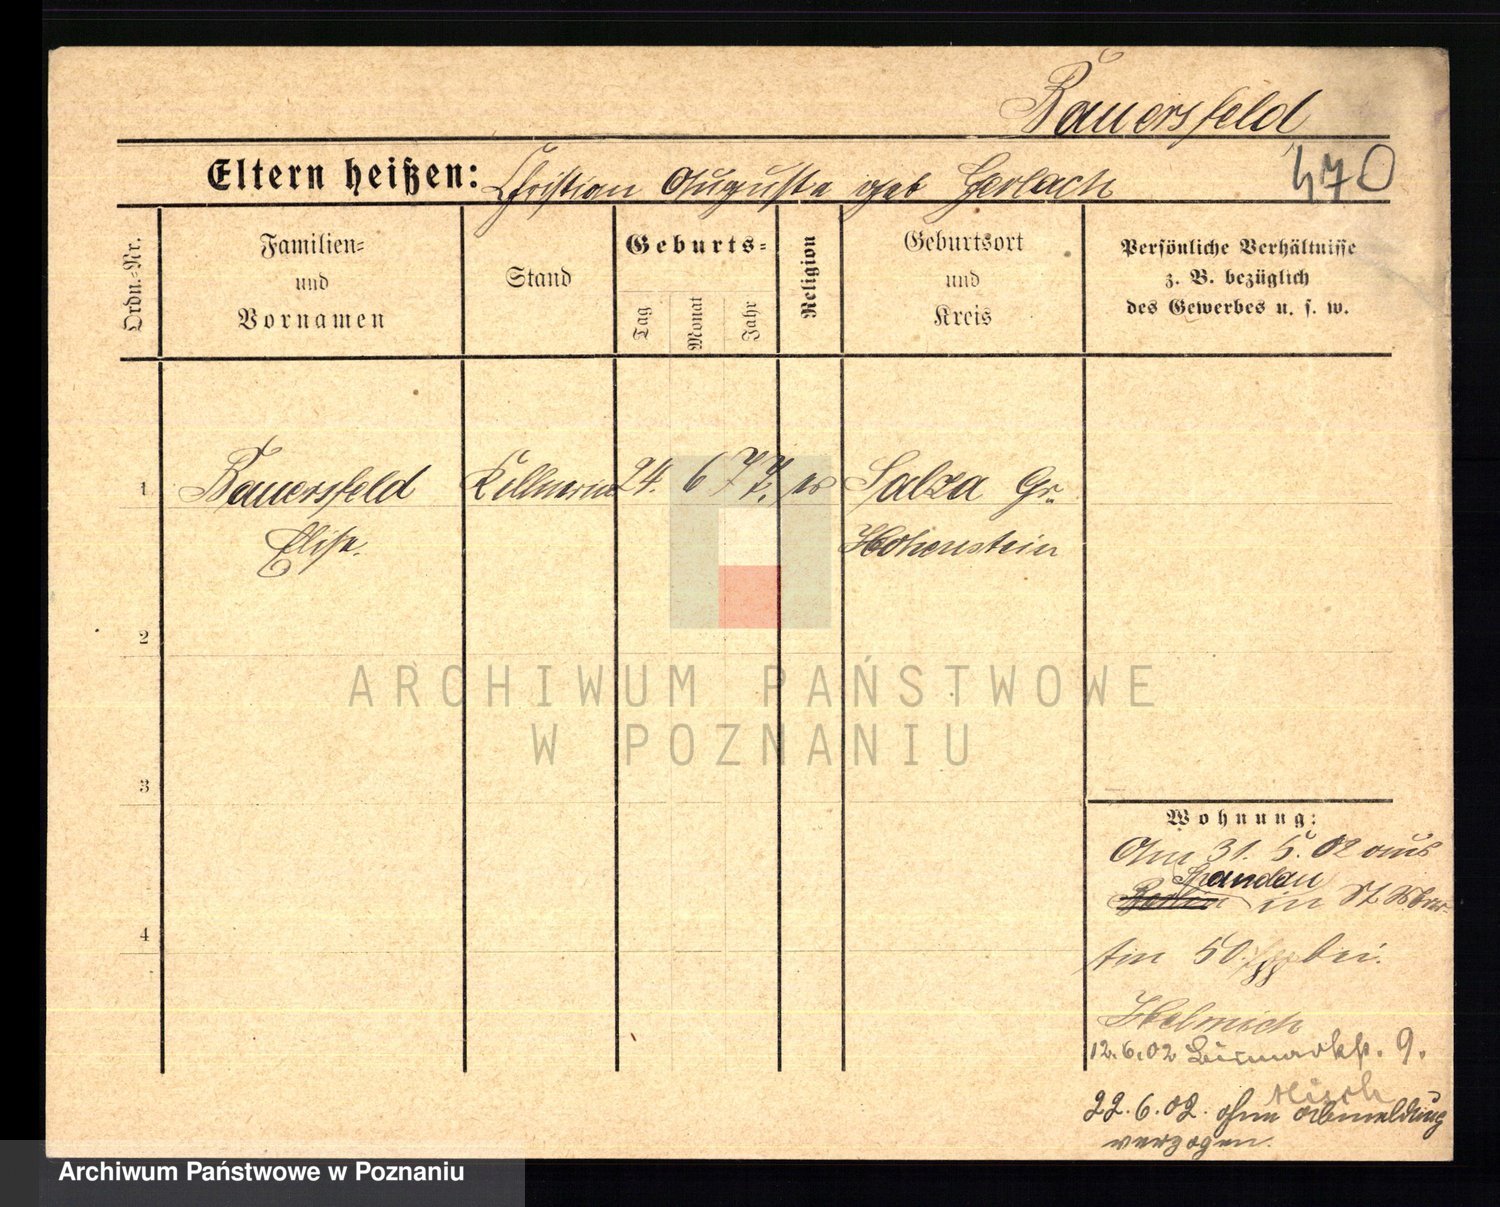 Bauersfeld
470
Eltern heißen: Christian Auguste geb Gerlach
Ordn.-Nr.
Familien-
und
Vornamen
Stand
Geburts-
Tag
Monat
Jahr
Religion
Geburtsort
und
Kreis
Persönliche Verhältnisse
z. B. bezüglich
des Gewerbes u. s. w.
1 Bauersfeld Kellnerin 24. 6 77. ev Salza Gr.
Elise. Hohenstein
2
3
4
Wohnung:
Am 31. 5. 02 aus
Spandau
Berlin in St Mar-
tin 50. bei.
Helmich
12.6.02 Bismarckstr. 9.
22.6.02. ohne Abmeldung
verzogen.
ARCHIWUM PAŃSTWOWE
W POZNANIU
Archiwum Państwowe w Poznaniu